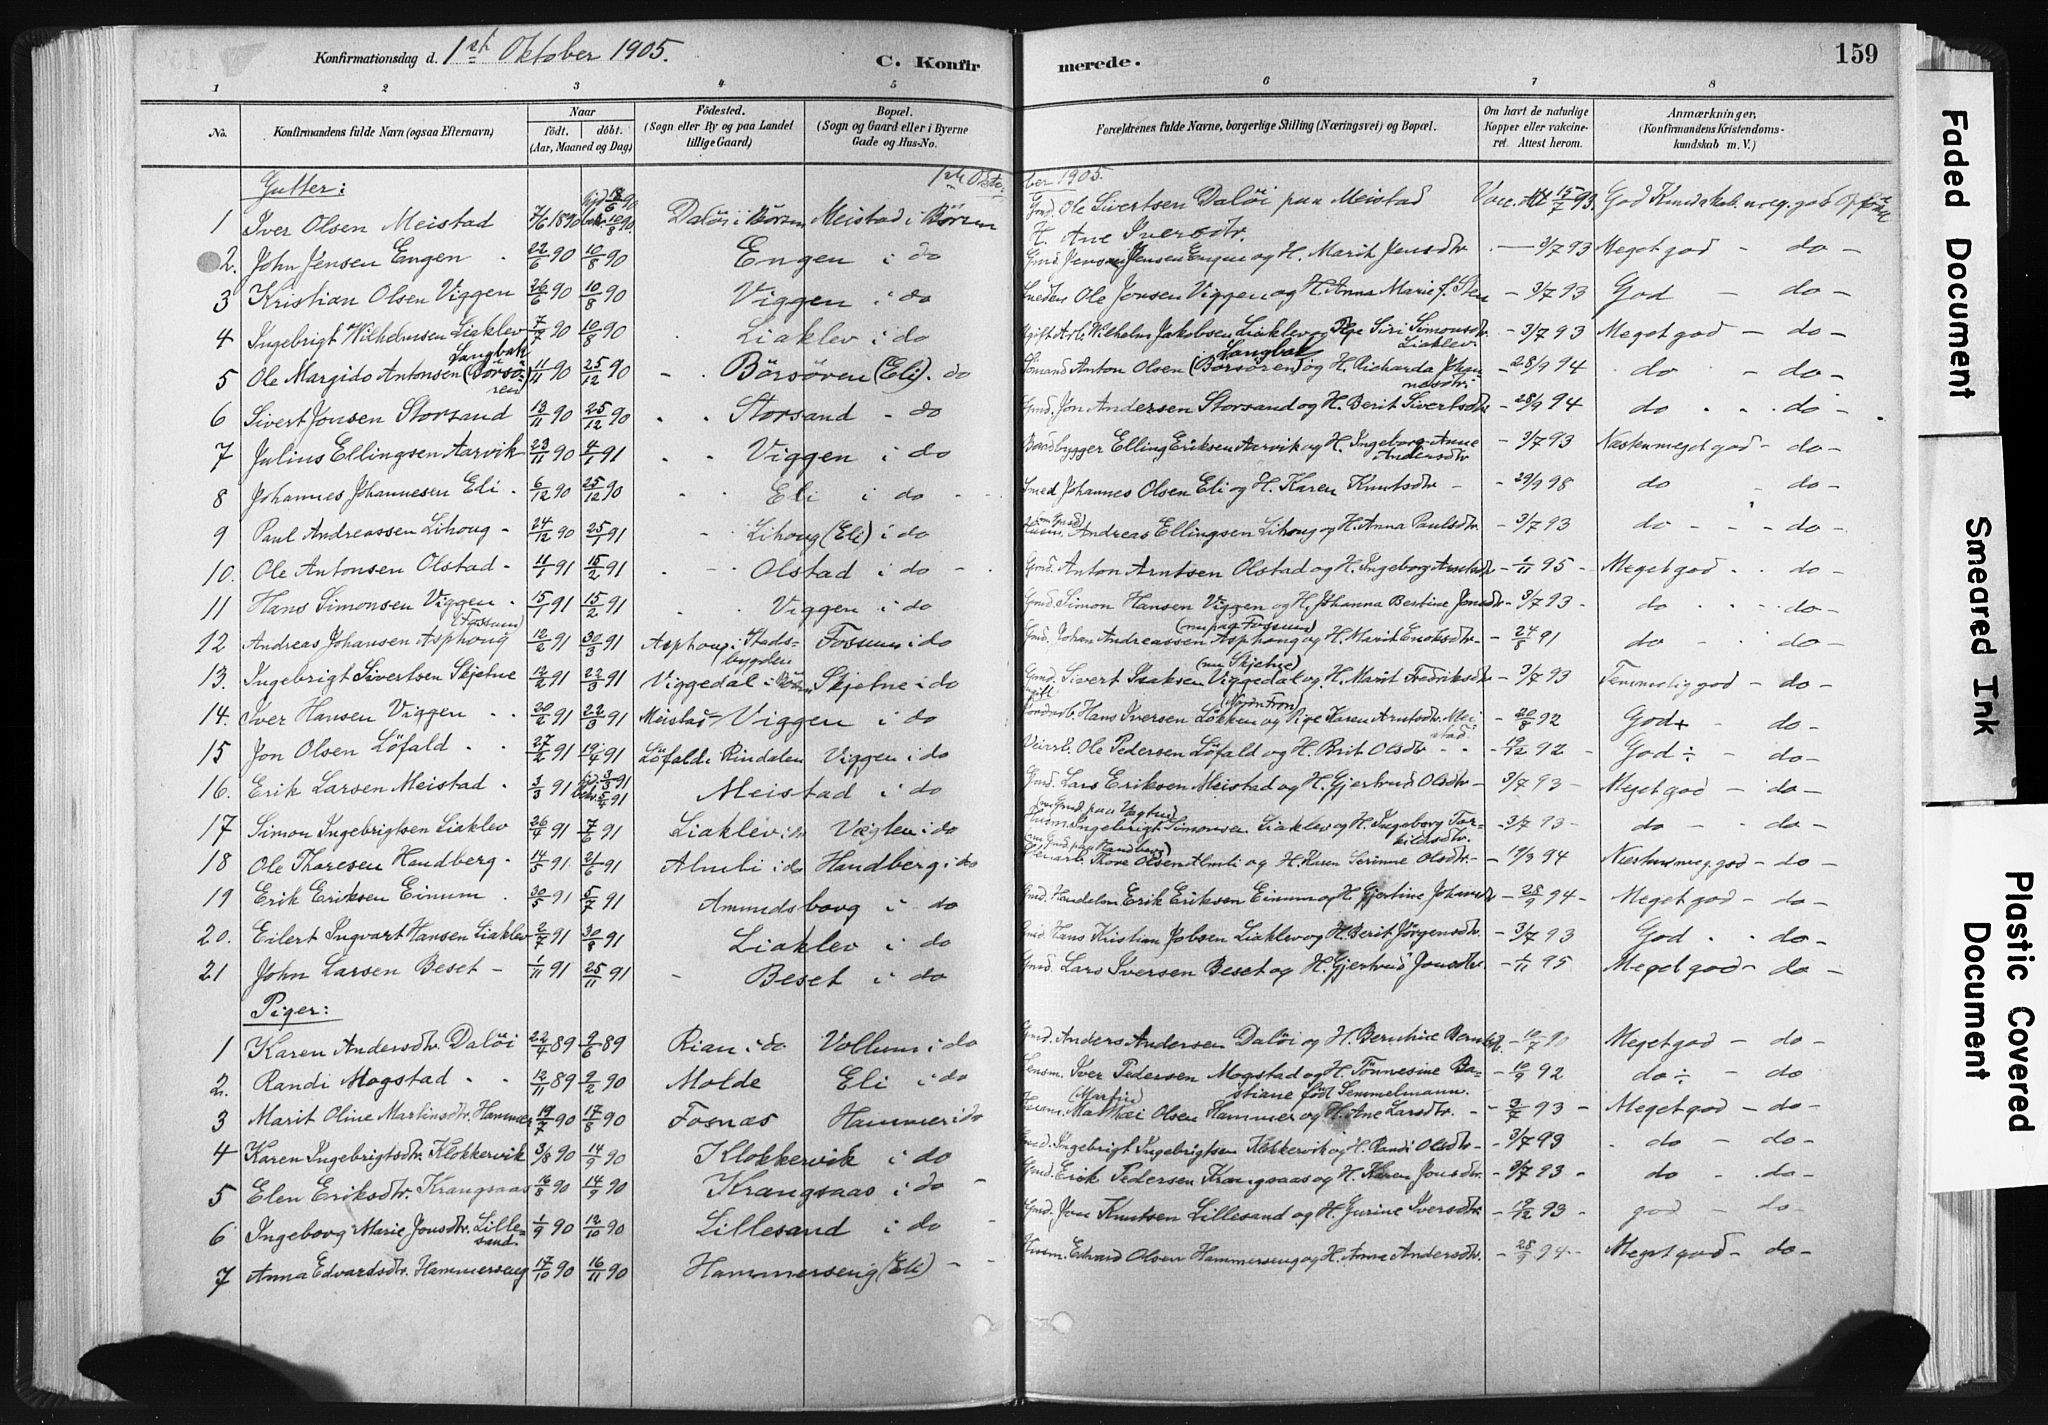 Konfirmationsdag d. 1ste Oktober 1905. C. Konfirmerede. 159
1 2 3 4 5 6 7 8
No. Konfirmandens fulde Navn (ogsaa Efternavn) Naar født. døbt. (Aar, Maaned og Dag) Fødested. (Sogn eller By og paa Landet tillige Gaard) Bopæl. (Sogn og Gaard eller i Byerne Gade og Hus-No. Forældrenes fulde Navne, borgerlige Stilling (Næringsvei) og Bopæl. Om havt de naturlige Kopper eller vaccineret. Attest herom. Anmærkninger. (Konfirmandens Kristendomskundskab m. V.)
Gutter: 1ste Oktober 1905.
1 Iver Olsen Meistad 7/6 1890 Daløi i Børsen Meistad i Børsen Gmd. Ole Sivertsen Daløi paa Meistad H. Ane Iversdtr. Vacc. 15/7 93. God Kundskab
2. John Jensen Engen 22/6 90 10/8 90 Engen i do Gmd. Jens Jensen Engen og H. Marit Jensdtr. 3/7 93 Meget god - do -
3 Kristian Olsen Viggen 26/6 90 10/8 90 Viggen i do Ole Jonsen Viggen og H. Anna Marie f. Sten - 3/7 93 God - do -
4 Ingebrigt Wilhelmsen Liaklev 7/7 90 10/8 90 Liaklev i do Wilhelm Jakobsen Liaklev og Pige Siri Simonsdtr. Liaklev - 3/7 93 Meget god - do -
5 Ole Margido Antonsen Langbak (Børsøren) 1/11 90 25/12 90 Børsøren (Eli) - do Sømand Anton Olsen Langbak (Børsøren) og H. Richarda Johannesdtr. - 28/9 94 do - do -
6 Sivert Jonsen Storsand 13/11 90 25/12 90 Storsand - do Gmd. Jon Andersen Storsand og H. Berit Sivertsdtr - 28/9 94 do do -
7 Julius Ellingsen Aarvik 23/11 90 4/1 91 Viggen i do Baadbygger Elling Eriksen Aarvik og H. Ingeborg Anne Andersdtr - 3/7 93 Næsten meget god - do -
8 Johannes Johannesen Eli - 6/12 90 25/12 90 Eli i do Smed Johannes Olsen Eli og H. Karen Knutsdtr - 29/9 98 do - do -
9 Paul Andreassen Lihoug - 24/12 90 25/1 91 Lihoug (Eli) i do Andreas Ellingsen Lihoug og H. Anna Paulsdtr. - 3/7 93 do - do -
10. Ole Antonsen Olstad - 11/1 91 15/2 91 Olstad i do Gmd. Anton Arntsen Olstad og H. Ingeborg Arntsdtr - 1/11 95 - Meget god do -
11 Hans Simonsen Viggen 15/1 91 15/2 91 Viggen i do Gmd. Simon Hansen Viggen og H. Johanna Bertine Jonsdtr - 3/7 93 - do do -
12 Andreas Johansen Asphoug (Fossum) 12/2 91 30/3 91 Asphoug i Stadsbygden Fossum i do Gmd. Johan Andreassen Asphoug (nu paa Fossum) og H. Marit Enoksdtr. - 24/8 91 do - do -
13. Ingebrigt Sivertsen Skjetne 12/2 91 22/3 91 Viggedal i Børsen Skjetne i do Gmd. Sivert Isaksen Viggedal (nu Skjetne) og H. Marit Fredriksdtr - 3/7 93 Temmelig god - do -
14. Iver Hansen Viggen 20/2 91 22/3 91 Meistad Viggen i do Hans Iversen Løkken (Nordre Fron) og Pige Karen Arntsdtr. Meistad - 20/8 92 God + do -
15 Jon Olsen Løfald 27/2 91 19/4 91 Løfald i Rindalen Viggen i do Veiarb. Ole Pedersen Løfald og H. Brit Olsdtr - 19/12 92 - God ÷ do -
16. Erik Larsen Meistad 3/3 91 Meistad i do Gmd. Lars Eriksen Meistad og H. Gjertrud Olsdtr - 3/7 93 - Meget god - do -
17 Simon Ingebrigtsen Liaklev 26/4 91 7/6 91 Liaklev i do Vægten i do Ingebrigt Simonsen Liaklev og H. Ingeborg Torkildsdtr. - 3/7 93 - do - do -
18 Ole Thoresen Handberg - 14/5 91. 21/6 91 Almli i do Handberg i do Thore Olsen Almli og H. Karen Serinne Olsdtr. - 19/3 94 Næsten meg. god - do -
19 Erik Eriksen Einum 30/5 91 5/7 91 Amundsborg i do Gmd. Handelsm. Erik Eriksen Einum og H. Gjertine Johansdtr - 28/9 94 - Meget god - do -
20. Eilert Ingvart Hansen Liaklev 2/7 91 30/8 91 Liaklev i do Gmd. Hans Kristian Jobsen Liaklev og H. Berit Jørgensdtr. - 3/7 93 God do -
21 John Larsen Beset - 1/11 91 25/11 91 Beset i do Gmd. Lars Iversen Beset og H. Gjertrud Jonsdtr. - 1/11 95 Meget god - do -
Piger:
1 Karen Andersdtr. Daløi 22/4 89 9/6 89 Rian i do Vollum i do Gmd. Anders Andersen Daløi og H. Bernhine - 19/7 90 Meget god - do -
2. Randi Mogstad 12/11 89 9/2 90 Molde Eli i do Lensm. Iver Pedersen Mogstad og H. Tønnesine Bastiane født Semmelmann. - 10/9 92 do ÷ - do
3 Marit Oline Martinsdtr. Hammer 19/7 90 17/8 90 Fosnæs Hammer i do (Martin) Mathæi Olsen Hammer og H. Ane Larsdtr. - 3/7 93 - Meget god - do -
4 Karen Ingebrigtsdtr. Klokkervik 3/8 90 14/9 90 Klokkervik i do Gmd. Ingebrigt Ingebrigtsen Klokkervik og H. Randi Olsdtr - 3/7 93 do - do -
5 Elen Eriksdtr. Krangsaas 16/8 90 14/9 90 Krangsaas i do - Gmd. Erik Pedersen Krangsaas og H. Karen Jonsdtr. - 3/7 93 - do - do -
6 Ingeborg Marie Jonsdtr. Lillesand. 1/9 90 12/10 90 Lillesand i do - Gmd. Jon Knutsen Lillesand og H. Gurine Iversdtr - 19/12 93 - god - do -
7 Anna Edvardsdtr. Hammerseng 17/10 90 16/11 90 Hammerseng (Eli) - - Husm. Edvard Olsen Hammerseng og H. Anne Andersdtr. - 28/9 94 - Meget god - do -
Faded Document
Smeared Ink
Plastic Covered
Document